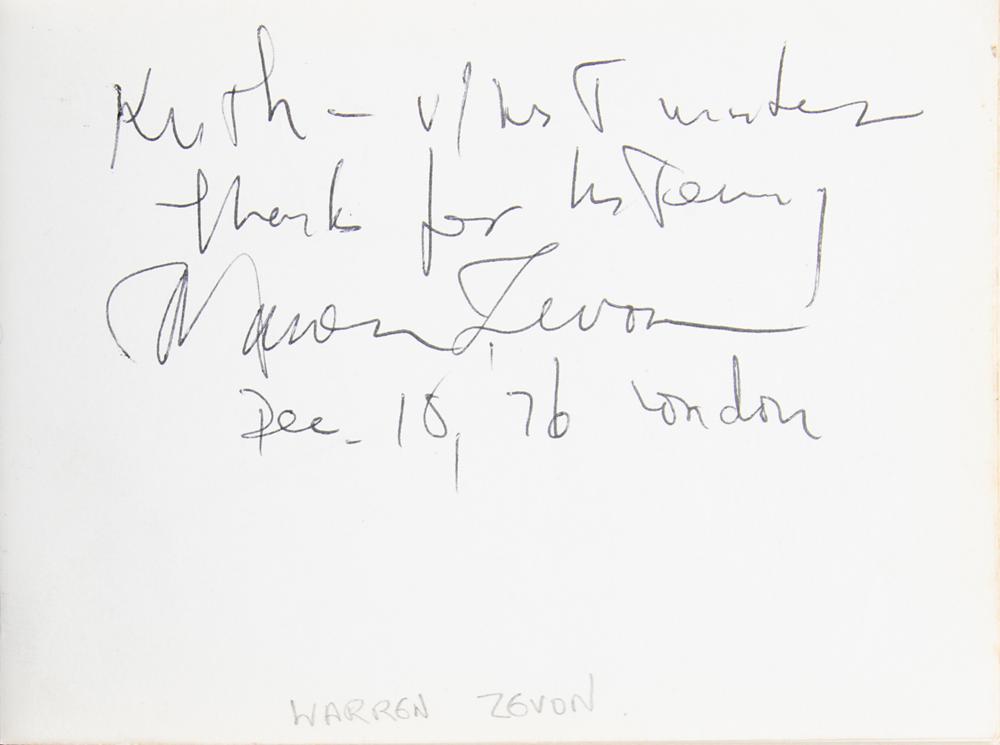 Keith – w/ best wishes
Thanks for listening
Warren Zevon
Dec. 18, '76 London
WARREN ZEVON.